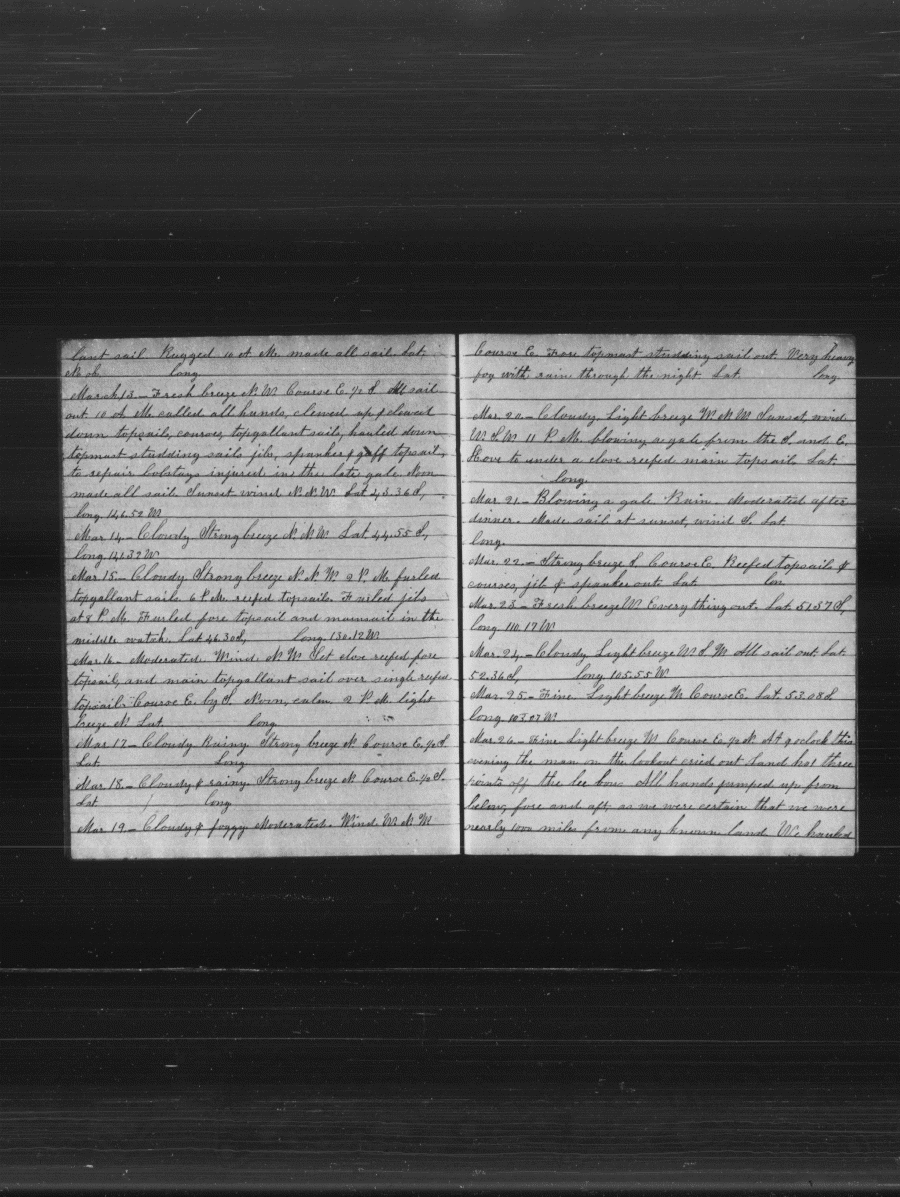 last sail. Rugged 10 A. M. made all sail. Lat.
long
March 13 - Fresh breeze N. W. Course E. 1/2 S. All sail
out. 10 A. M. called all hands, clewed up & clewed
down topsails, courses, topgallant sails, hauled down
topmast studding sails jib, spanker & gaff topsail,
to repair bobstays injured in the late gale. Noon
made all sail. Sunset wind N. N. W. Lat 43.36 S,
long. 146.52 W
Mar. 14 - Cloudy Strong breeze N. N. W. Lat 44.55 S,
long. 141.37 W
Mar. 15 - Cloudy. Strong breeze N. N. W. 2 P. M. furled
topgallant sails. 6 P. M. reefed topsails. Furled jibs
at 8 P. M. Furled fore topsail and mainsail in the
middle watch. Lat 46.30 S, long. 136.12 W
Mar. 16 - Moderated. Wind N. W. Set close reefed fore
topsail, and main topgallant sail over single reefed
topsails. Course E. by S. Noon, calm. 2 P. M. light
breeze N. Lat long
Mar. 17 - Cloudy Rainy. Strong breeze N. Course E. 1/2 S
Lat Long
Mar. 18 - Cloudy & rainy. Strong breeze N. Course E. 1/2 S.
Lat Long
Mar. 19 - Cloudy & foggy Moderated. Wind W. N. W
Course E. Fore topmast studding sail out. Very heavy
fog with rain through the night Lat. long
Mar. 20 - Cloudy, light breeze W. N. W. Sunset, wind
W. S. W. 11 P. M. blowing a gale from the S. and E.
Hove to under a close reefed main topsail. Lat.
long.
Mar. 21 - Blowing a gale. Rain. Moderated after
dinner. Made sail at sunset, wind S. Lat
long.
Mar. 22 - Strong breeze S. Course E. Reefed topsails &
courses, jib & spanker out. Lat lon
Mar. 23 - Fresh breeze W Everything out. Lat. 51.57 S,
long 110.17 W
Mar. 24 - Cloudy Light breeze W. S. W. All sail out. Lat.
52.36 S, long. 105.55 W
Mar. 25 - Fine. Light breeze W. Course E. Lat 53.08 S
long. 103.07 W
Mar. 26 - Fine. Light breeze W. Course E. 1/2 N. At 9 oclock this
evening the man on the lookout cried out Land ho! three
points off the lee bow. All hands jumped up from
below, fore and aft, as we were certain that we were
nearly 1000 miles from any known land. We hauled